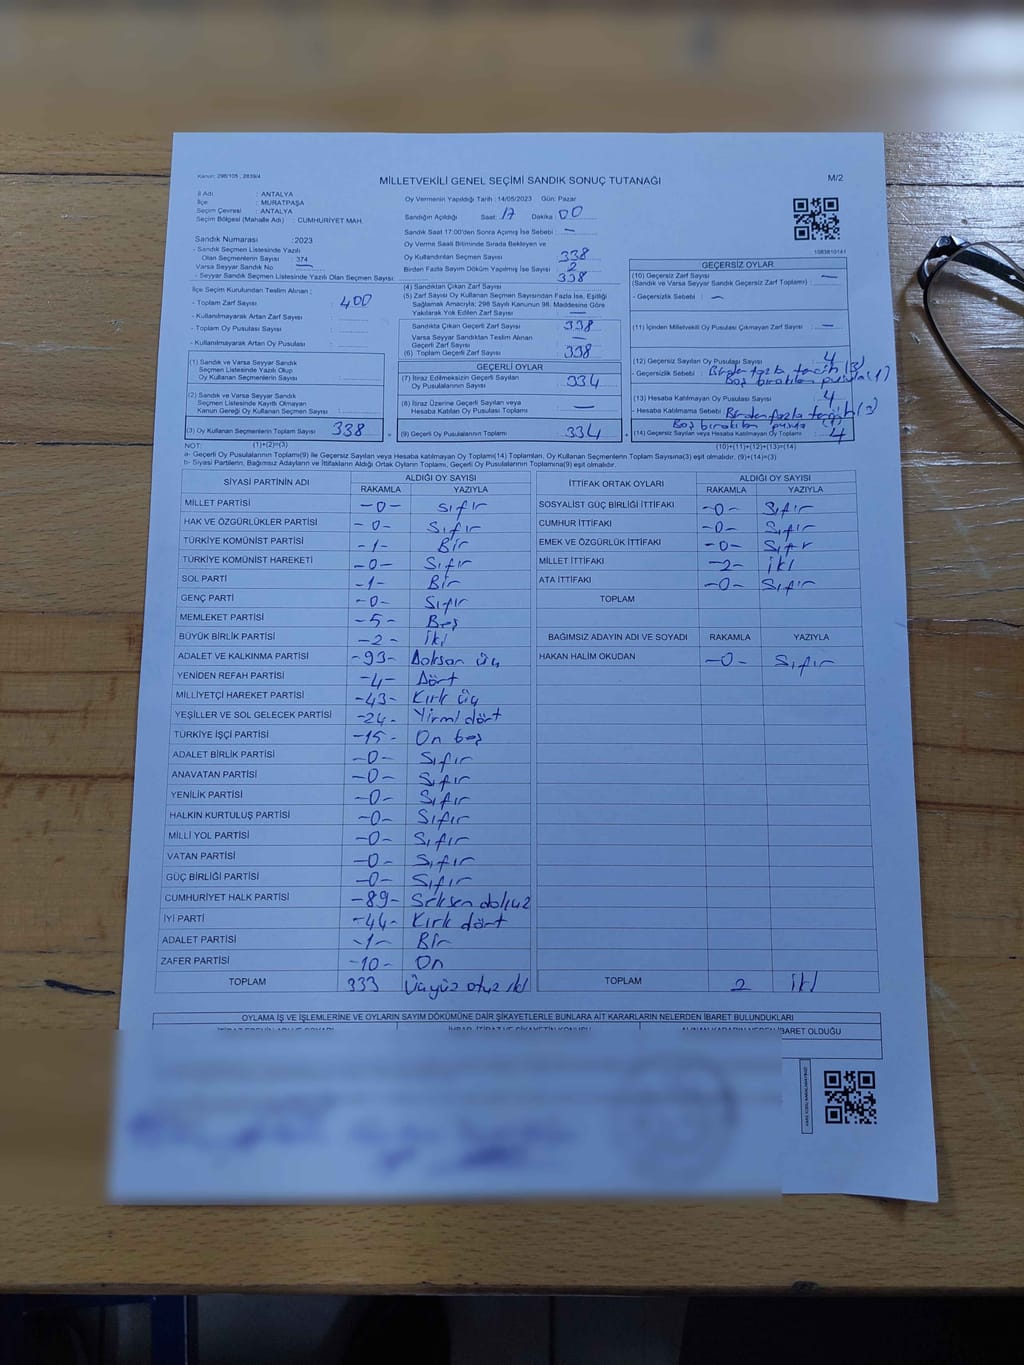 Kanun: 298/105 , 2839/4
MİLLETVEKİLİ GENEL SEÇİMİ SANDIK SONUÇ TUTANAĞI
M/2
İl Adı : ANTALYA
İlçe : MURATPAŞA
Seçim Çevresi : ANTALYA
Seçim Bölgesi (Mahalle Adı) : CUMHURİYET MAH.
Sandık Numarası :2023
- Sandık Seçmen Listesinde Yazılı
Olan Seçmenlerin Sayısı 374
Varsa Seyyar Sandık No —
- Seyyar Sandık Seçmen Listesinde Yazılı Olan Seçmen Sayısı:
İlçe Seçim Kurulundan Teslim Alınan ;
- Toplam Zarf Sayısı : 400
- Kullanılmayarak Artan Zarf Sayısı :
- Toplam Oy Pusulası Sayısı :
- Kullanılmayarak Artan Oy Pusulası :
(1) Sandık ve Varsa Seyyar Sandık
Seçmen Listesinde Yazılı Olup
Oy Kullanan Seçmenlerin Sayısı :
(2) Sandık ve Varsa Seyyar Sandık
Seçmen Listesinde Kayıtlı Olmayan
Kanun Gereği Oy Kullanan Seçmen Sayısı :
(3) Oy Kullanan Seçmenlerin Toplam Sayısı 338
(1)+(2)=(3)
Oy Vermenin Yapıldığı Tarih : 14/05/2023 Gün: Pazar
Sandığın Açıldığı Saat: 17 Dakika : 00
Sandık Saat 17:00'den Sonra Açımış İse Sebebi : —
Oy Verme Saati Bitiminde Sırada Bekleyen ve
Oy Kullandırılan Seçmen Sayısı 338
Birden Fazla Sayım Döküm Yapılmış İse Sayısı 2
338
(4) Sandıktan Çıkan Zarf Sayısı
(5) Zarf Sayısı Oy Kullanan Seçmen Sayısından Fazla İse, Eşitliği
Sağlamak Amacıyla; 298 Sayılı Kanunun 98. Maddesine Göre
Yakılarak Yok Edilen Zarf Sayısı —
Sandıkta Çıkan Geçerli Zarf Sayısı 338
Varsa Seyyar Sandıktan Teslim Alınan
Geçerli Zarf Sayısı —
(6) Toplam Geçerli Zarf Sayısı : 338
GEÇERLİ OYLAR
(7) İtiraz Edilmeksizin Geçerli Sayılan
Oy Pusulalarının Sayısı : 334
(8) İtiraz Üzerine Geçerli Sayılan veya
Hesaba Katılan Oy Pusulası Toplamı : —
(9) Geçerli Oy Pusulalarının Toplamı : 334
1083810141
GEÇERSİZ OYLAR
(10) Geçersiz Zarf Sayısı —
(Sandık ve Varsa Seyyar Sandık Geçersiz Zarf Toplamı) :
- Geçersizlik Sebebi : —
(11) İçinden Milletvekili Oy Pusulası Çıkmayan Zarf Sayısı : —
(12) Geçersiz Sayılan Oy Pusulası Sayısı : 4
- Geçersizlik Sebebi : Birden fazla tercih (3)
Boş bırakılan pusula (1)
(13) Hesaba Katılmayan Oy Pusulası Sayısı : 4
- Hesaba Katılmama Sebebi : Birden fazla tercih (3)
Boş bırakılan pusula (1)
(14) Geçersiz Sayılan veya Hesaba Katılmayan Oy Toplamı : 4
(10)+(11)+(12)+(13)=(14)
NOT:
a- Geçerli Oy Pusulalarının Toplamı(9) ile Geçersiz Sayılan veya Hesaba katılmayan Oy Toplamı(14) Toplamları, Oy Kullanan Seçmenlerin Toplam Sayısına(3) eşit olmalıdır. (9)+(14)=(3)
b- Siyasi Partilerin, Bağımsız Adayların ve İttifakların Aldığı Ortak Oyların Toplamı, Geçerli Oy Pusulalarının Toplamına(9) eşit olmalıdır.
SİYASİ PARTİNİN ADI ALDIĞI OY SAYISI
RAKAMLA YAZIYLA
MİLLET PARTİSİ -0- sıfır
HAK VE ÖZGÜRLÜKLER PARTİSİ -0- Sıfır
TÜRKİYE KOMÜNİST PARTİSİ -1- Bir
TÜRKİYE KOMÜNİST HAREKETİ -0- Sıfır
SOL PARTİ -1- Bir
GENÇ PARTİ -0- Sıfır
MEMLEKET PARTİSİ -5- Beş
BÜYÜK BİRLİK PARTİSİ -2- İki
ADALET VE KALKINMA PARTİSİ -93- Doksan üç
YENİDEN REFAH PARTİSİ -4- Dört
MİLLİYETÇİ HAREKET PARTİSİ -43- Kırk üç
YEŞİLLER VE SOL GELECEK PARTİSİ -24- Yirmi dört
TÜRKİYE İŞÇİ PARTİSİ -15- On beş
ADALET BİRLİK PARTİSİ -0- Sıfır
ANAVATAN PARTİSİ -0- Sıfır
YENİLİK PARTİSİ -0- Sıfır
HALKIN KURTULUŞ PARTİSİ -0- Sıfır
MİLLİ YOL PARTİSİ -0- Sıfır
VATAN PARTİSİ -0- Sıfır
GÜÇ BİRLİĞİ PARTİSİ -0- Sıfır
CUMHURİYET HALK PARTİSİ -89- Seksen dokuz
İYİ PARTİ -44- Kırk dört
ADALET PARTİSİ -1- Bir
ZAFER PARTİSİ -10- On
TOPLAM 333 Üçyüz otuz iki
İTTİFAK ORTAK OYLARI ALDIĞI OY SAYISI
RAKAMLA YAZIYLA
SOSYALİST GÜÇ BİRLİĞİ İTTİFAKI -0- Sıfır
CUMHUR İTTİFAKI -0- Sıfır
EMEK VE ÖZGÜRLÜK İTTİFAKI -0- Sıfır
MİLLET İTTİFAKI -2- İki
ATA İTTİFAKI -0- Sıfır
TOPLAM
BAĞIMSIZ ADAYIN ADI VE SOYADI RAKAMLA YAZIYLA
HAKAN HALİM OKUDAN -0- Sıfır
TOPLAM 2 iki
OYLAMA İŞ VE İŞLEMLERİNE VE OYLARIN SAYIM DÖKÜMÜNE DAİR ŞİKAYETLERLE BUNLARA AİT KARARLARIN NELERDEN İBARET BULUNDUKLARI